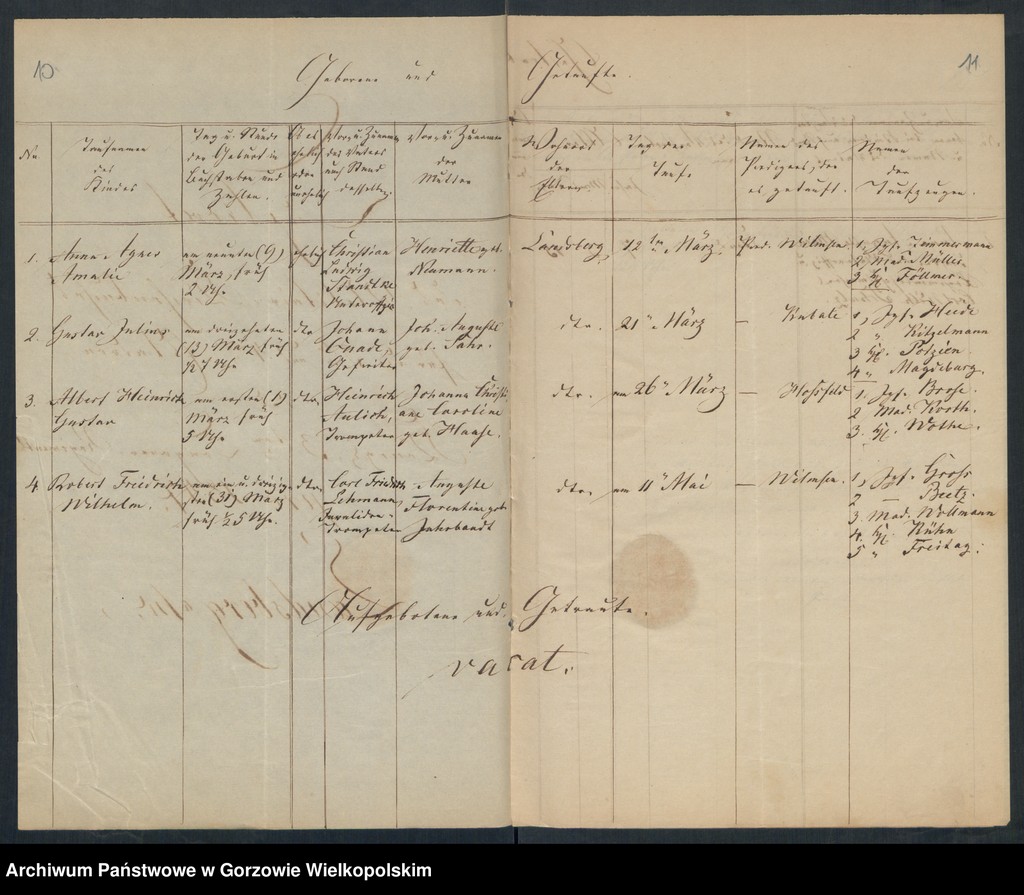 10
11
Geborene und Getaufte.
No
Taufnamen
des
Kindes
Tag u. Stunde
der Geburt in
Buchstaben und
Zahlen.
Ob es
ehelich
oder
unehelich
Vor u. Zunamen
des Vaters
auch Stand
desselben.
Vor u. Zunamen
der
Mutter
Wohnort
der
Eltern
Tag der
Taufe
Namen des
Predigers, der
es getauft.
Namen
der
Taufzeugen.
1.
Anna Agnes
Amalie
am neunten (9)
März, früh
2 Uhr
ehelich
Christian
Ludwig
Standtke
Unteroffizier
Henriette geb.
Neumann.
Landsberg
12ten März
Pred. Wilmsen
1, Jgf. Timmermann
2. Mad. Müller
3 Föllmer.
2.
Gustav Julius
am dreizehnten
(13) März früh
½7 Uhr
dto.
Johann
Gefreiter
Joh. Auguste
geb. Fahr.
dto.
21" März
—
Kubale
1, Jgf. Heide
2 " Kitzelmann
3 Potzien.
4 " Magdeburg.
3.
Albert Heinrich
Gustav
am ersten (1)
März früh
5 Uhr
dto.
Heinrich
Aulich,
Trompeter
Johanna Christi-
ane Caroline
geb. Haase.
dto.
am 26" März
—
Hossfeld
1. Jgf. Brose.
2 Mad. Kroth.
3. Wothe.
4
Robert Friedrich
Wilhelm.
am ein u. dreißig
sten (31) März
früh ½5 Uhr.
dto.
Carl Friedrich
Lehmann,
Invaliden-
Trompeter
Auguste
Florentine geb.
Jahrbandt
dto.
am 11" Mai
—
Wilmsen.
1, Jgf. Grohs
2 — Beetz.
3. Mad. Wollmann
4. Kühn
5 " Freitag.
Aufgebotene und Getraute.
vacat.
Archiwum Państwowe w Gorzowie Wielkopolskim